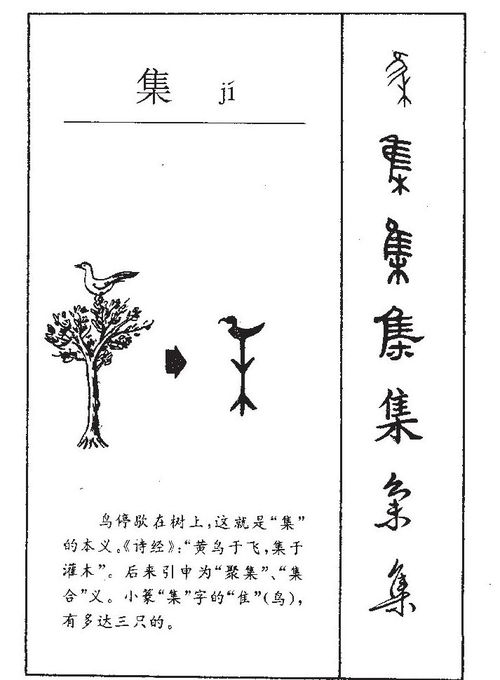 集 jí
鸟停歇在树上，这就是“集”
的本义。《诗经》：“黄鸟于飞，集于
灌木”。后来引申为“聚集”、“集
合”义。小篆“集”字的“隹”(鸟)，
有多达三只的。
集
集
集
集
集
集
集